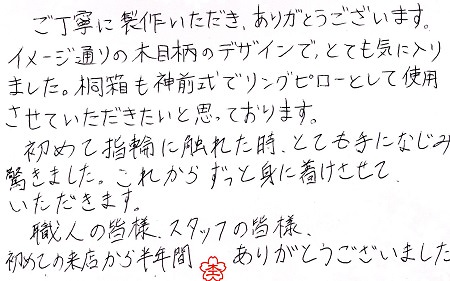 ご丁寧に製作いただき、ありがとうございます。
イメージ通りの木目柄のデザインで、とても気に入り
ました。桐箱も神前式でリングピローとして使用
させていただきたいと思っております。
初めて指輪に触れた時、とても手になじみ
驚きました。これからずっと身に着けさせて
いただきます。
職人の皆様、スタッフの皆様、
初めての来店から半年間 ありがとうございました